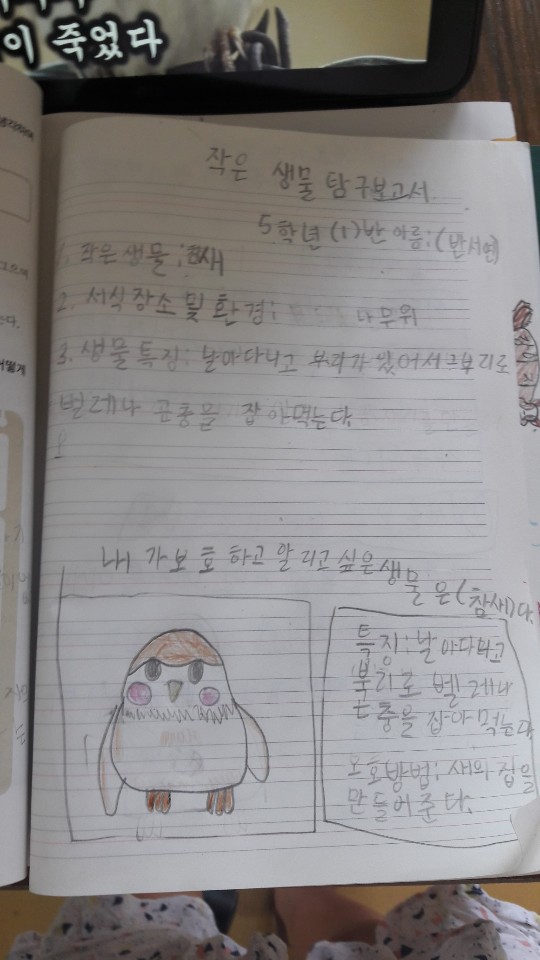 이 죽었다
작은 생물 탐구보고서
5학년 (1)반 이름:(반서연)
1. 작은생물: 새
2. 서식장소 및 환경: 나무위
3. 생물특징: 날아다니고 부리가 있어서 부리로
벌레나 곤충을 잡아먹는다.
내가 보호하고 알리고 싶은 생물은 (참새)다.
특징: 날아다니고
부리로 벌레나
곤충을 잡아 먹는다
보호방법: 새의 집을
만들어 준다.